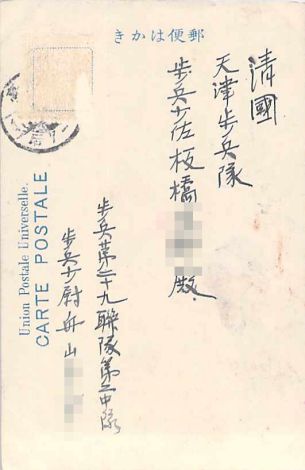 郵便はかき
清國
天津歩兵隊
歩兵少佐板橋 殿
歩兵第二十九聯隊第二中隊
歩兵少尉舟山
Union Postale Universelle.
CARTE POSTALE